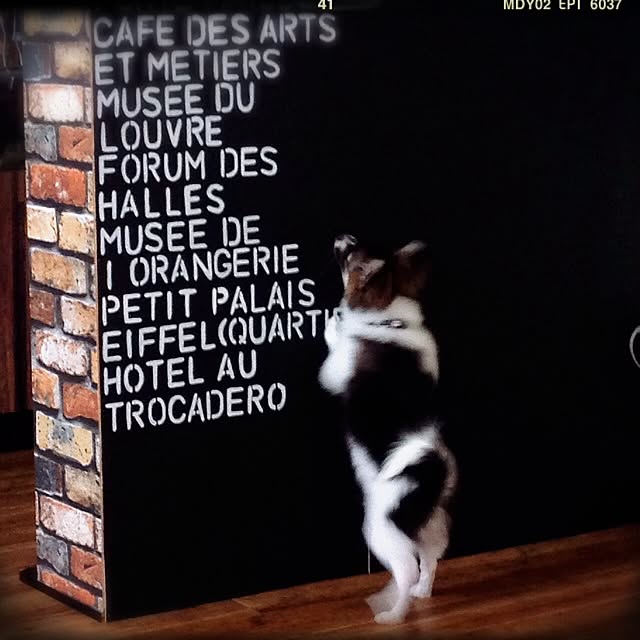 41 MDY02 EPT 6037
CAFE DES ARTS
ET METIERS
MUSEE DU
LOUVRE
FORUM DES
HALLES
MUSEE DE
l ORANGERIE
PETIT PALAIS
EIFFEL(QUARTI
HOTEL AU
TROCADERO